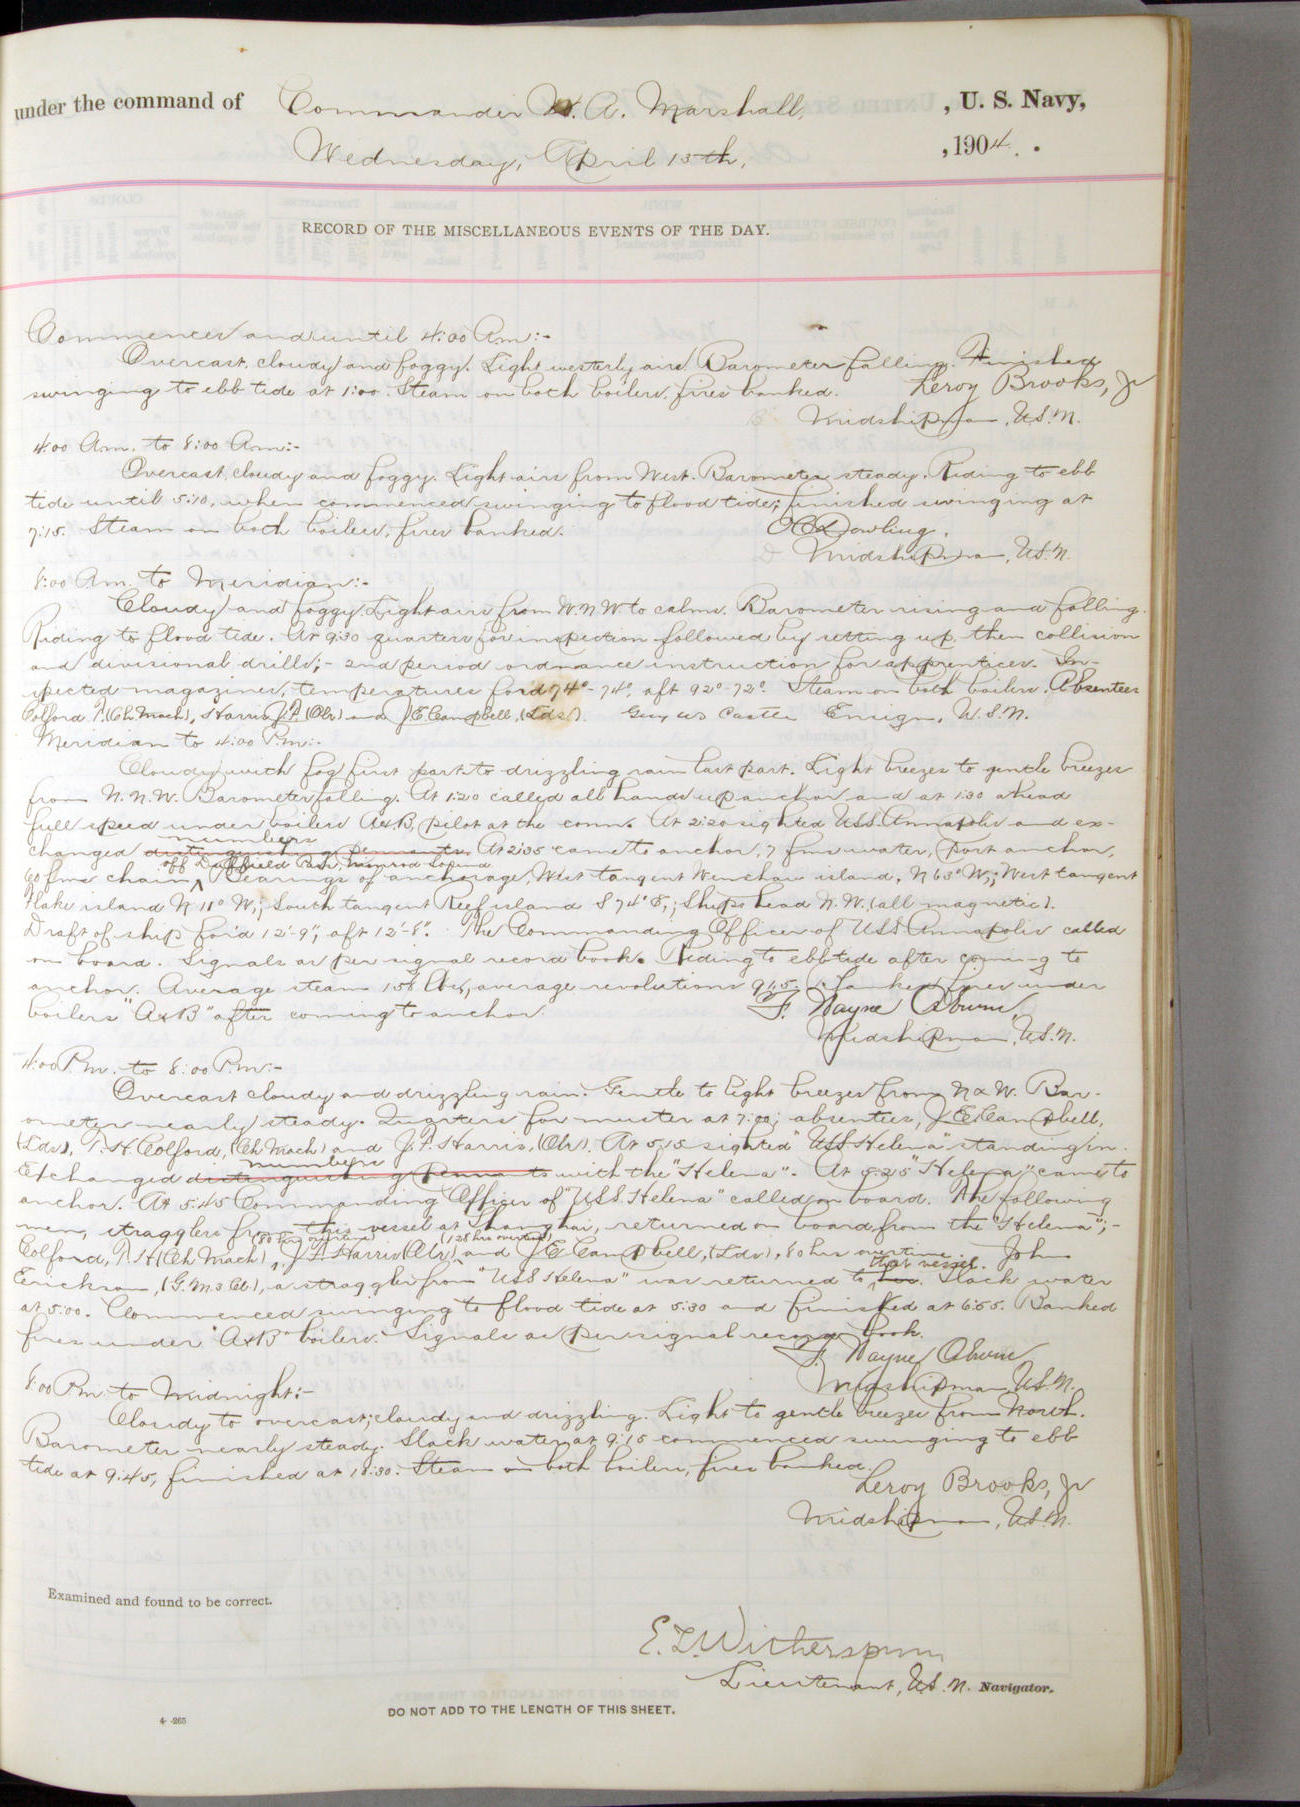 under the command of Commander W. A. Marshall, , U. S. Navy,
Wednesday, April 13th, , 1904.
RECORD OF THE MISCELLANEOUS EVENTS OF THE DAY.
Commences and until 4:00 Am:-
Overcast, cloudy and foggy. Light westerly airs. Barometer falling. Finished
swinging to ebb tide at 1:00. Steam on both boilers, fires banked. Leroy Brooks, Jr
Midshipman, U.S.N.
4:00 Am. to 8:00 Am:-
Overcast, cloudy and foggy. Light airs from West. Barometer steady. Riding to ebb
tide until 5:10, when commenced swinging to flood tide; finished swinging at
7:15. Steam on both boilers, fires banked. Dowling,
Midshipman, U.S.N.
8:00 Am. to Meridian:-
Cloudy and foggy. Light airs from N.N.W to calms. Barometer rising and falling.
Riding to flood tide. At 9:30 quarters for inspection followed by setting up, then collision
and divisional drills;- 2nd period ordnance instruction for apprentices. In-
spected magazines, temperatures for'd 74°-74°, aft 92°-72°. Steam on both boilers. Absentees
Colford P.(Ch.Mach), Harris J.F.(Olr) and J.E.Campbell,(Lds). Guy WS Castle Ensign, U.S.N.
Meridian to 4:00 P.m:-
Cloudy with fog first part to drizzling rain last part. Light breezes to gentle breezes
from N.N.W. Barometer falling. At 1:20 called all hands up anchor and at 1:30 ahead
full speed under boilers A&B, pilot at the conn. At 2:20 sighted U.S.S. Annapolis and ex-
numbers
changed distinguishing pennants. At 2:35 came to anchor, 7 fms water, port anchor,
off Duffield P. , Nimrod Sound
60 fms chain. Bearings of anchorage, West tangent Wenchau island, N 63° W.; West tangent
Flake island N 11° W.; South tangent Reef island S 74° E.; Ships head N.W. (all magnetic).
Draft of ship for'd 12'-9", aft 12'-8". The Commanding Officer of U.S.S. Annapolis called
on board. Signals as per signal record book. Riding to ebb tide after coming to
anchor. Average steam 156 lbs, average revolutions 91.5. Banked fires under
boilers "A&B" after coming to anchor. F. Wayne Osburn,
Midshipman, U.S.N.
4:00 P.m. to 8:00 P.m:-
Overcast cloudy and drizzling rain. Gentle to light breezes from N & W. Bar-
ometer nearly steady. Quarters for muster at 7:00; absentees, J.E.Campbell,
(Lds), P.H.Colford, (Ch Mach) and J.F.Harris, (Olr). At 5:15 sighted "U.S.S. Helena" standing in.
numbers
Exchanged distinguishing penna ts with the "Helena". At 5:25 "Helena" came to
anchor. At 5:45 Commanding Officer of "U.S.S. Helena" called on board. The following
men, stragglers from this vessel at Shanghai, returned on board from the "Helena";-
(80 hrs overtime) (128 hrs overtime)
Colford, P.H (Ch Mach), J.F.Harris (Olr) and J.E.Campbell, (Lds), 80 hrs overtime. John
that vessel.
Erickson, (G.M.3 Cl), a straggler from "U.S.S Helena" was returned to her. Slack water
at 5:00. Commenced swinging to flood tide at 5:30 and finished at 6:55. Banked
fires under "A&B" boilers. Signals as per signal record book.
F. Wayne Osburn
Midshipman, U.S.N.
8:00 P.m. to Midnight:-
Cloudy to overcast; cloudy and drizzling. Light to gentle breezes from North.
Barometer nearly steady. Slack water at 9:15 commenced swinging to ebb
tide at 9:45, finished at 10:30. Steam on both boilers, fires banked.
Leroy Brooks, Jr
Midshipman, U.S.N.
Examined and found to be correct.
E. T. Witherspoon
Lieutenant, U.S.N. Navigator.
DO NOT ADD TO THE LENGTH OF THIS SHEET.
4-265